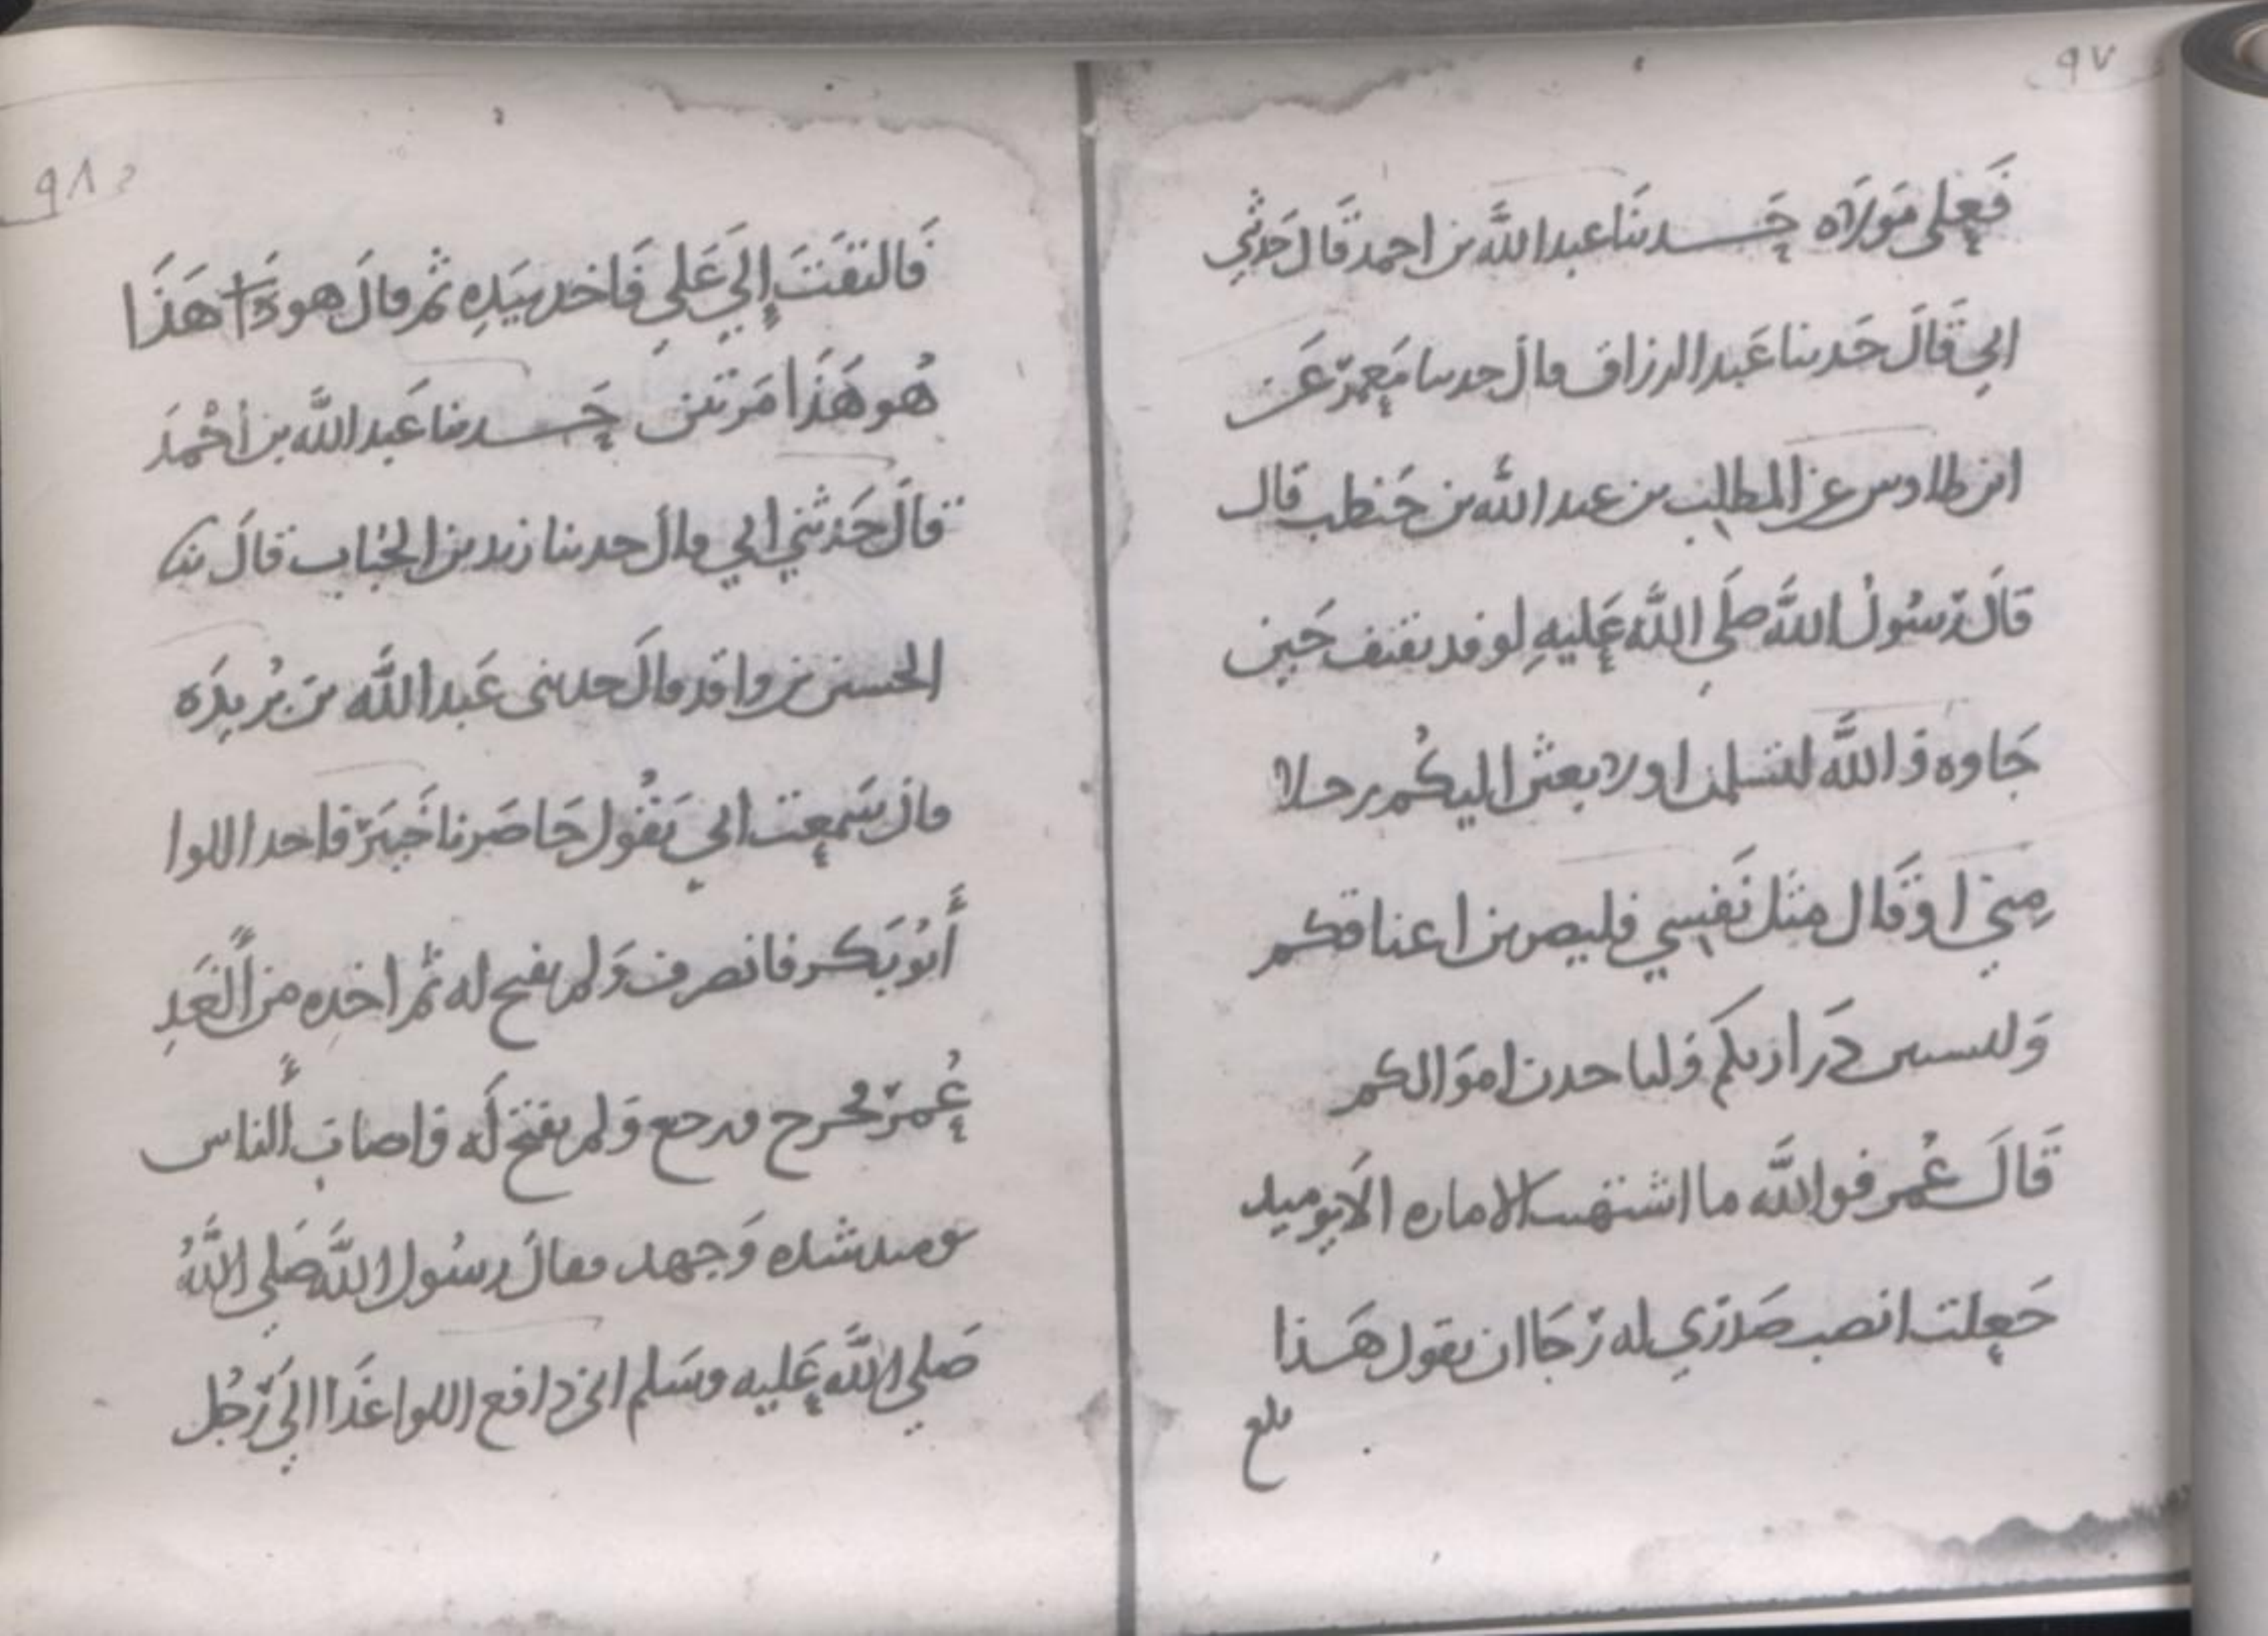 ٩٧
فَعَلي مَوْلاه حَدثنَا عبد اللَّه بن احمد قَالَ حَدثني
ابي قَالَ حَدثنا عَبد الرزاق قال حدثنا مَعمَر عَن
ابن طاوس عن المطلِب بن عبد اللَّه بن حَنطب قال
قالَ رَسُولُ اللَّه صَلي اللَّه عَليهِ لوفد ثقيف حَين
جَاوه وَاللَّه لتسلمن اولا بعثن اليكُم رجلا
مِني اوقَال مثَل نَفسِي فليضربن اعناقكم
وَليسبين دَراريكم وَلياخدن امَوالكم
قَالَ عُمر فواللَّه ما اشتهيت الاماره الا يوميد
جَعلت انصب صَدرِي له رَجَا ان يقول هَذا
بلغ
٩٨
فَالتفَتَ إلَي عَلي فَاخد بيَدِه ثم قالَ هو ذا هَذَا
هُو هَذَا مَرتين حَدثنا عَبد اللَّه بن أحْمدَ
قالَ حَدثني ابي قال حدثنا زيد بن الحُبَاب قالَ ثنا
الحسين بن واقد قالَ حدثنى عَبد اللَّه بن بُريدَه
قال سَمعت ابي يَقُول حَاصَرنا خَيبَر فاخد اللوا
أَبُو بَكر فانصرف وَلم يفتح له ثُم اخده من الَغَدِ
عُمَر فخرج فرجع وَلم يفتح لَه وَاصابَ الناس
يوميد شده وَجهد فقال رسُول اللَّه صَلي اللَّهُ
صَلي اللَّه عَليه وسَلم اني دافع اللوا غَدا الي رَجُل